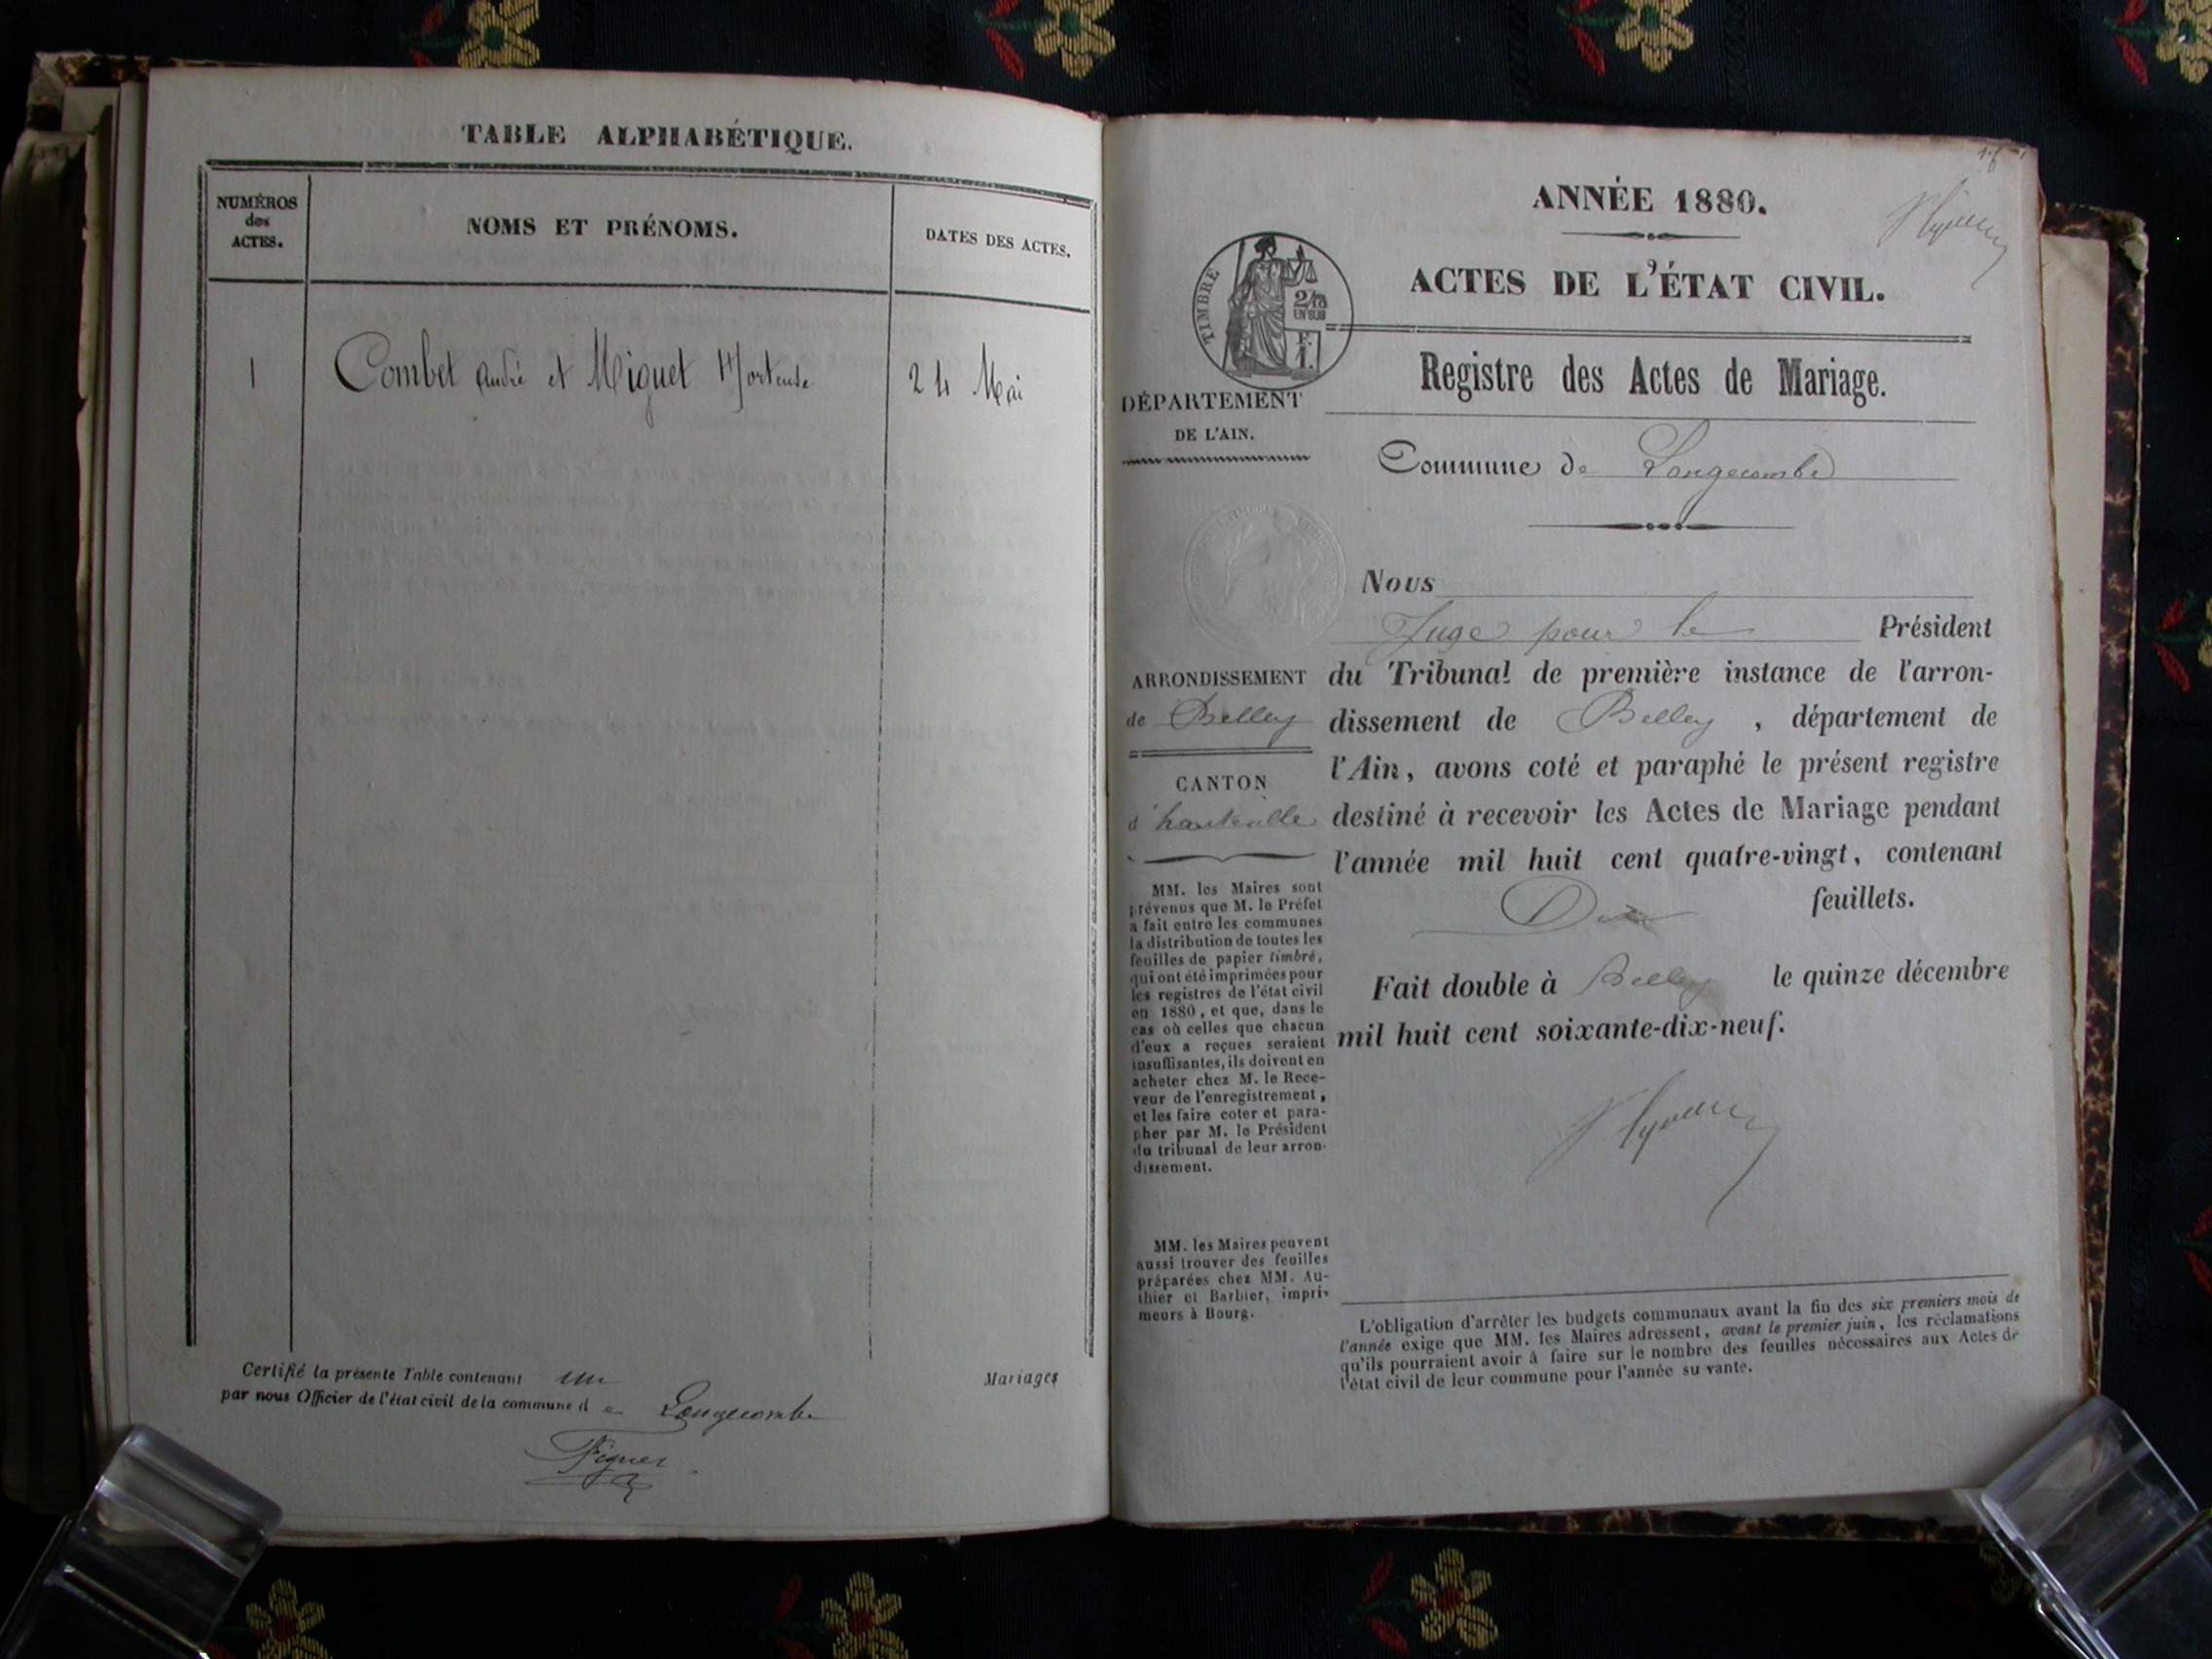 TABLE ALPHABÉTIQUE.
NUMÉROS
des
ACTES.
NOMS ET PRÉNOMS.
DATES DES ACTES.
1 Combet André et Miguet Hortense 24 Mai
Certifié la présente Table contenant un Mariages
par nous Officier de l'état civil de la commune d e Longecombe
ANNÉE 1880.
ACTES DE L'ÉTAT CIVIL.
TIMBRE
2/10
EN SUS
F.
1.
Registre des Actes de Mariage.
DÉPARTEMENT
DE L'AIN.
Commune de Longecombe
Nous
Juge pour le Président
du Tribunal de première instance de l'arron-
dissement de Belley, département de
l'Ain, avons coté et paraphé le présent registre
destiné à recevoir les Actes de Mariage pendant
l'année mil huit cent quatre-vingt, contenant
feuillets.
Fait double à Belley le quinze décembre
mil huit cent soixante-dix-neuf.
ARRONDISSEMENT
de Belley
CANTON
d'hauteville
MM. les Maires sont
prévenus que M. le Préfet
a fait entre les communes
la distribution de toutes les
feuilles de papier timbré,
qui ont été imprimées pour
les registres de l'état civil
en 1880, et que, dans le
cas où celles que chacun
d'eux a reçues seraient
insuffisantes, ils doivent en
acheter chez M. le Rece-
veur de l'enregistrement,
et les faire coter et para-
pher par M. le Président
du tribunal de leur arron-
dissement.
MM. les Maires peuvent
aussi trouver des feuilles
préparées chez MM. Au-
thier et Barbier, impri-
meurs à Bourg.
L'obligation d'arrêter les budgets communaux avant la fin des six premiers mois de
l'année exige que MM. les Maires adressent, avant le premier juin, les réclamations
qu'ils pourraient avoir à faire sur le nombre des feuilles nécessaires aux Actes de
l'état civil de leur commune pour l'année suivante.